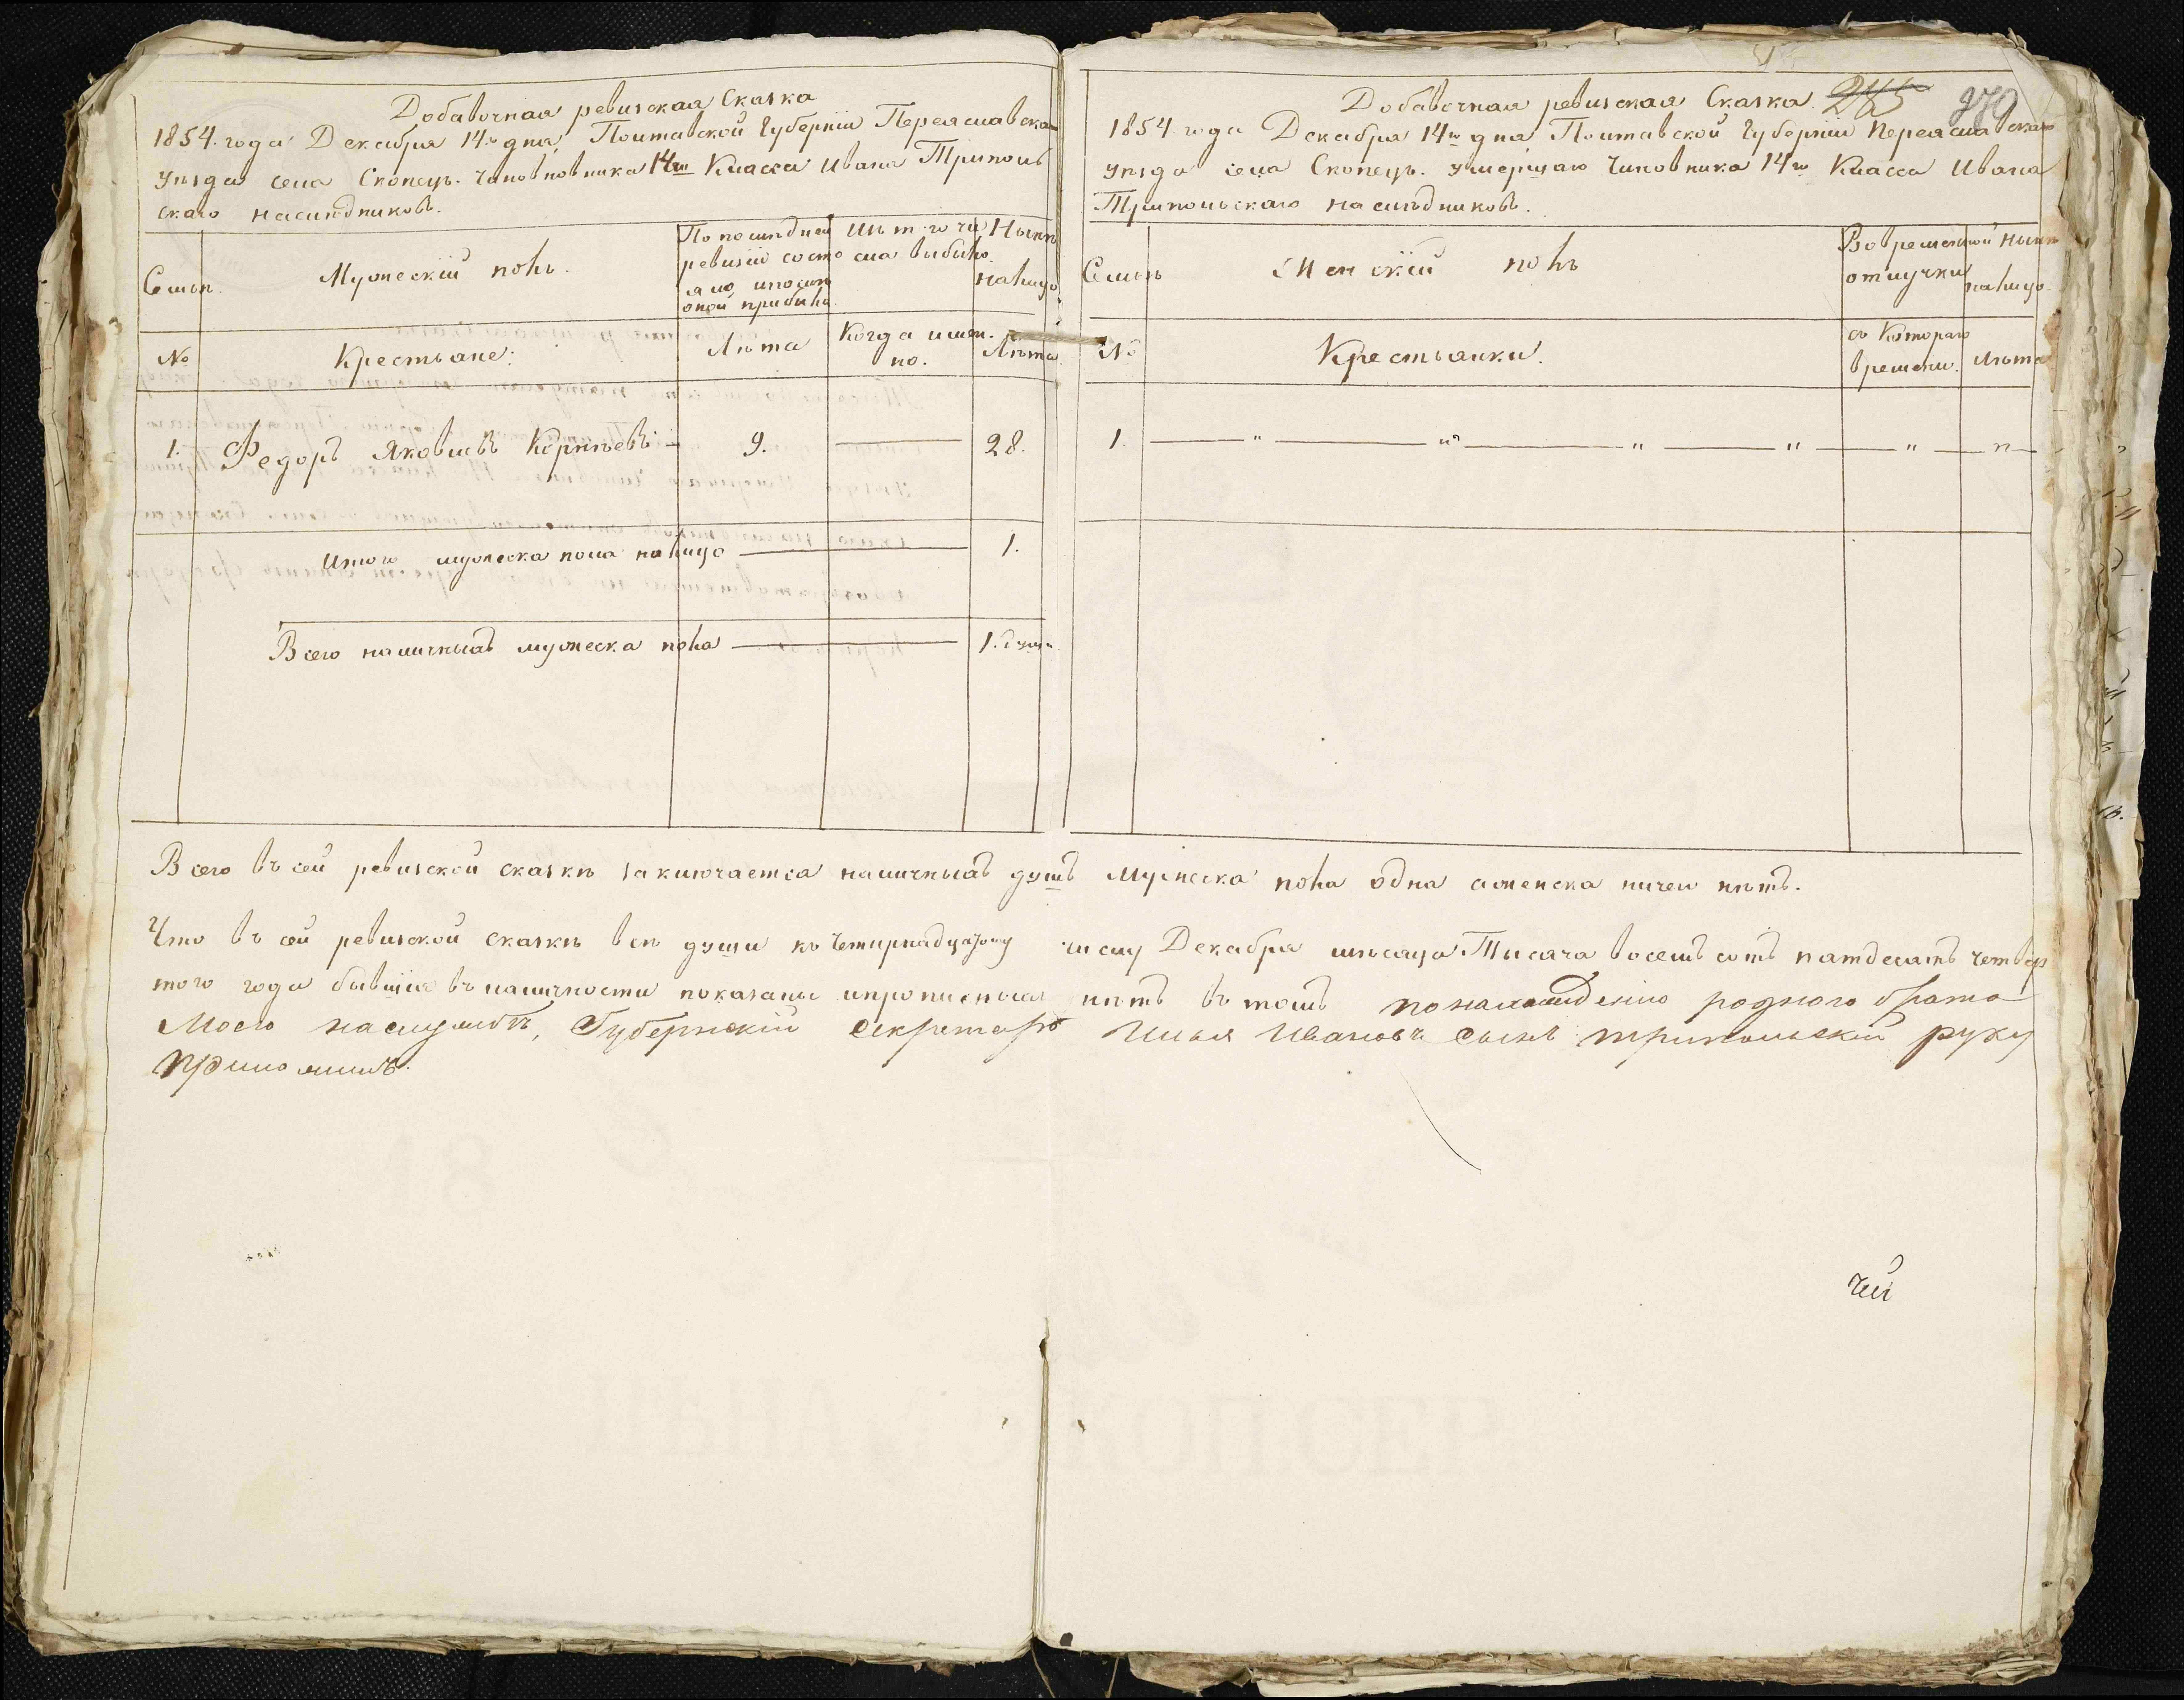 Добавочная ревизская Сказка
1854. года Декабря 14го дня, Полтавской Губерніи Переяславска
уѣзда села Скопецъ. Чиновновника 14го Класса Ивана Триполь
скаго наслѣдниковъ.
Семьи.
Мужескій полъ.
По последней
ревизіи состо
яло ипослѣ
оной прибыло
Изъ того чи
сла выбыло
Нынѣ
налицо
№
Крестьяне:
Лѣта
Когда имен.
но.
Лѣта
1. Федоръ Яковлевъ Корнѣевъ — 9. — 28.
Итого мужеска пола налицо — 1.
Всего наличныхъ мужеска пола — 1. душа
Добавочная ревизская Сказка. 285 270
1854 года Декабря 14го дня, Полтавской Губерніи Переяславскаго
уѣзда села Скопецъ. умершаго Чиновника 14го Класса Ивана
Трипольскаго наслѣдниковъ.
Семьи
Женскій полъ
Вовременной
отлучки
Нынѣ
налицо
№
Крестьянки.
съ Котораго
времени.
лѣта
1. — " — " — " — " — " — " —
Всего въ сей ревизской сказкѣ заключается наличныхъ душъ мужеска пола одна аженска ничего нѣтъ.
Что въ сей ревизской сказкѣ всѣ души къ Четирнадцатому числу Декабря мѣсяца Тысяча восемъ сотъ пятдесятъ четвер
того года бывшіе въ наличности показаны ипрописныхъ нѣтъ въ томъ родного брата
Моего Губернскій Секретарь Илья Ивановъ Сынъ трипольскій руку
приложилъ.
чій